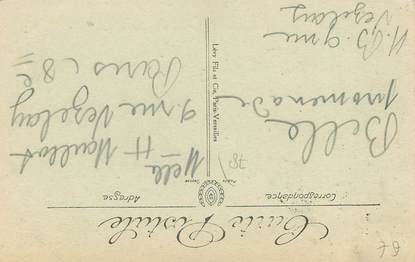 Carte Postale
Correspondance
Adresse
Belle
promenade
H. B. 9 rue
Vezelay
Lévy Fils et Cie, Paris-Versailles
78
Melle H Maillot
9. rue Vezelay
Paris (8e